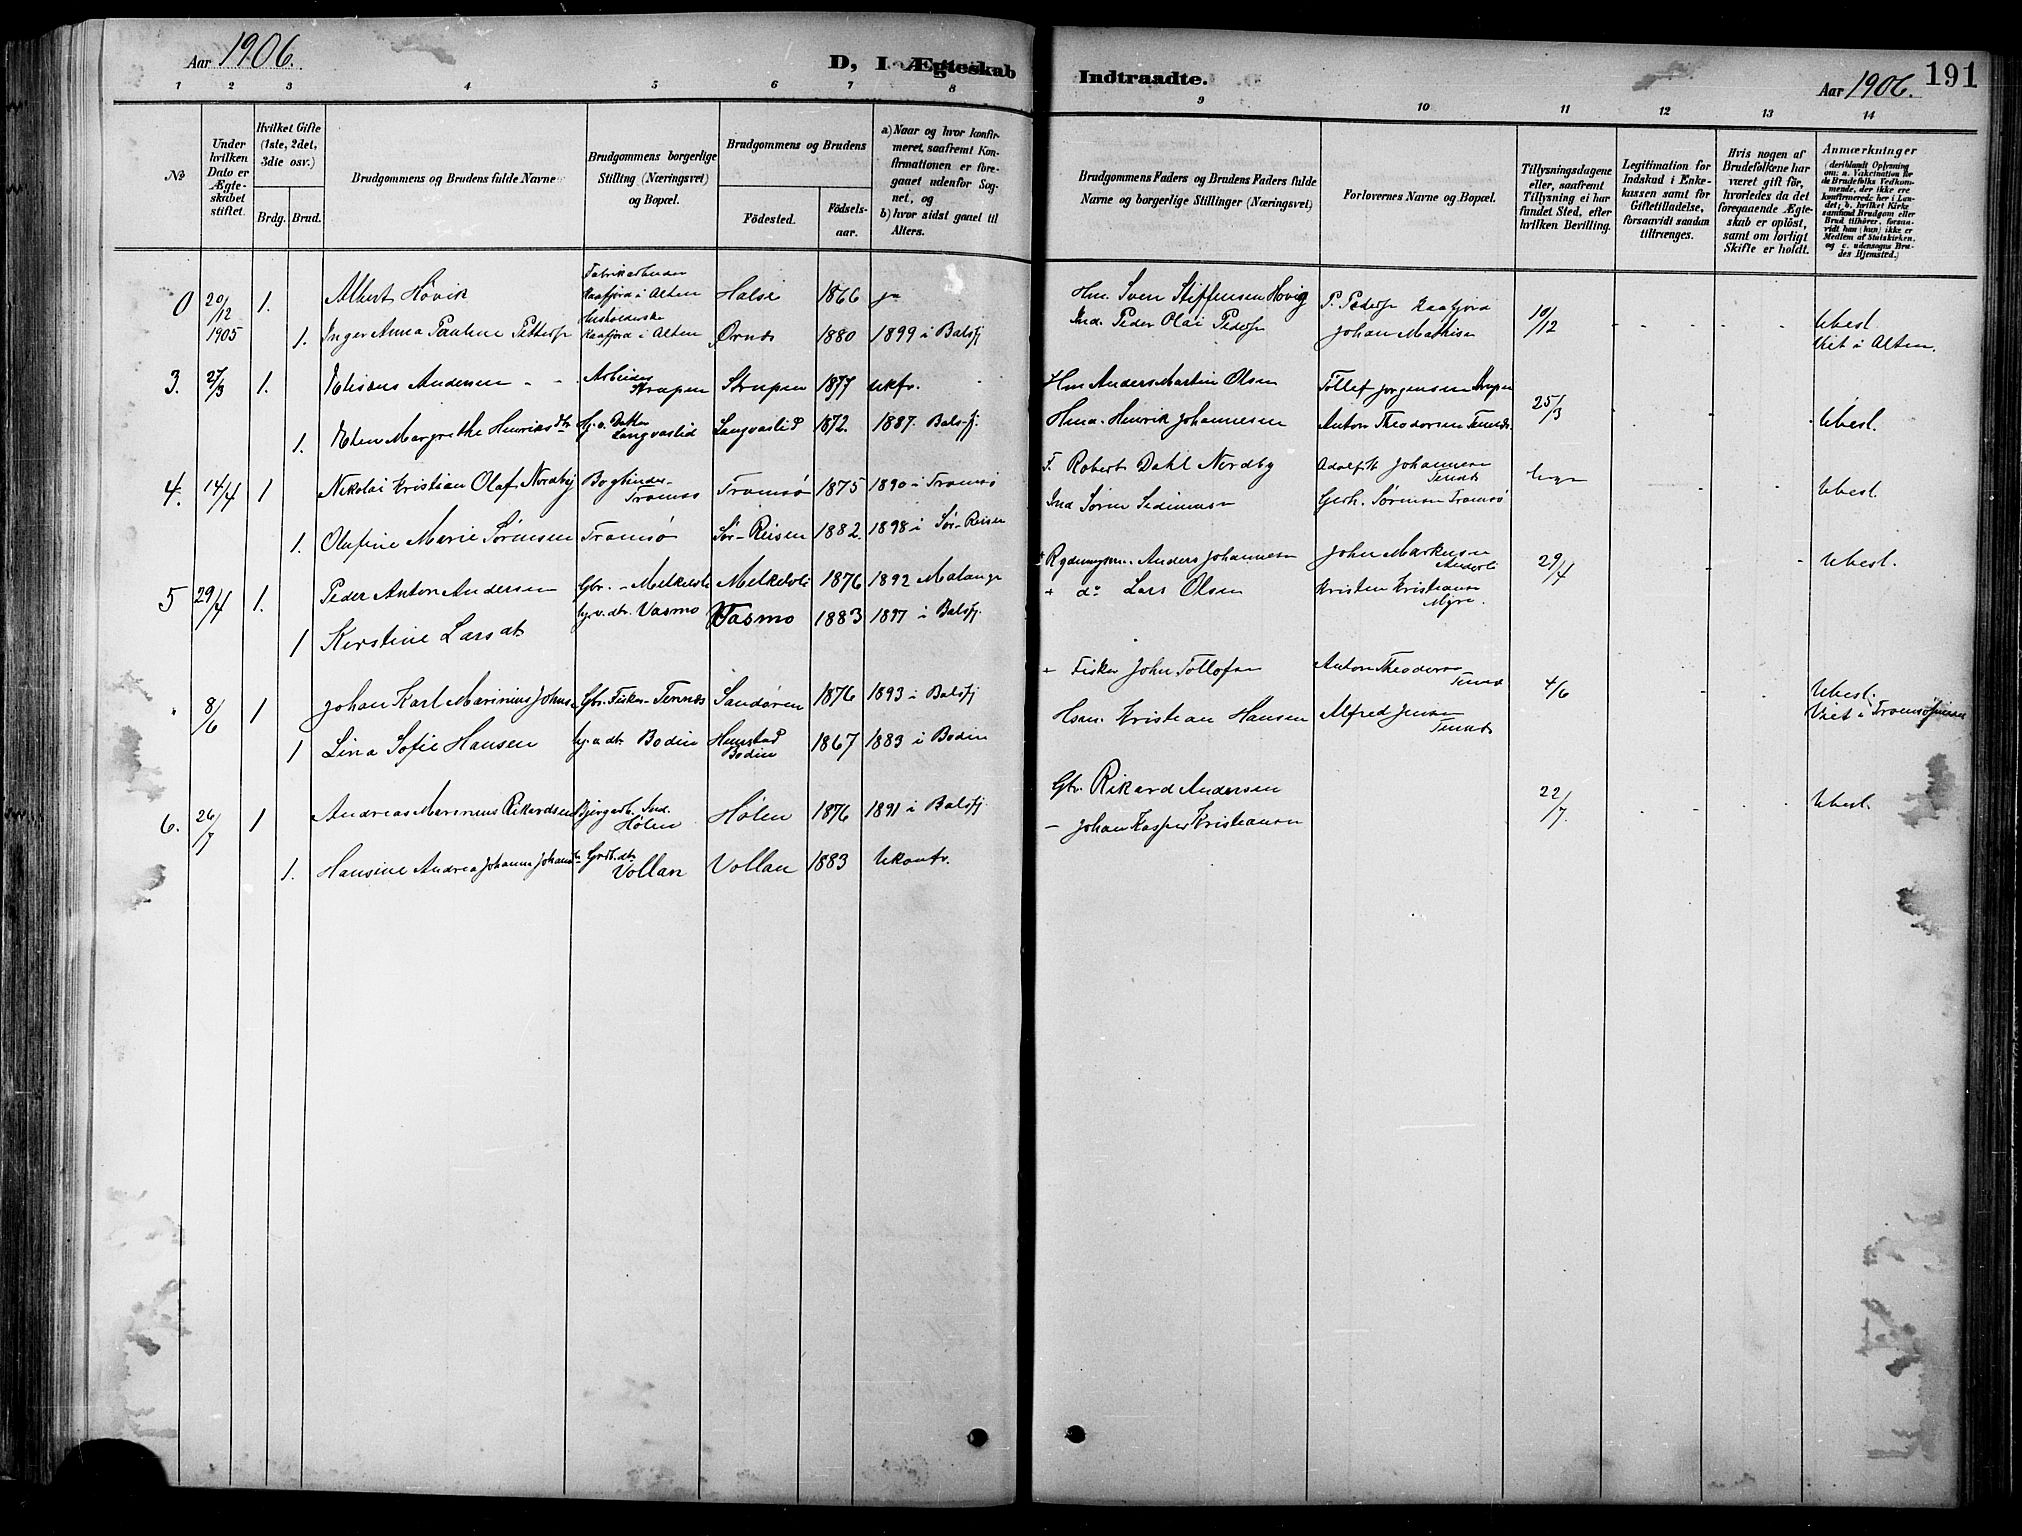 Aar 1906.
D, I Ægteskab
Indtraadte.
Aar 1906.
191
1 2 3 4 5 6 7 8 9 10 11 12 13 14
No
Under hvilken Dato er Ægteskabet stiftet.
Hvilket Gifte (1ste, 2det, 3die osv.)
Brdg. Brud.
Brudgommens og Brudens fulde Navne
Brudgommens borgerlige Stilling (Næringsvei) og Bopæl.
Brudgommens og Brudens
Födested.
Födselsaar.
a) Naar og hvor konfirmeret, saafremt Konfirmationen er foregaaet udenfor Sognet, og
b) hvor sidst gaaet til Alters.
Brudgommens Faders og Brudens Faders fulde Navne og borgerlige Stillinger (Næringsvei)
Forlovernes Navne og Bopæl.
Tillysningsdagene eller, saafremt Tillysning ei har fundet Sted, efter hvilken Bevilling.
Legitimation for Indskud i Enkekassen samt for Giftetilladelse, forsaavidt saadan tiltrænges.
Hvis nogen af Brudefolkene har været gift för, hvorledes da det foregaaende Ægteskab er oplöst, samt om lovligt Skifte er holdt.
Anmærkninger (deriblandt Oplysning om: a. Vakcination for de Brudefolks Vedkommende, der ikke ere konfirmerede her i Landet; b. hvilket Kirkesamfund Brudgom eller Brud tilhörer, forsaavidt han (hun) ikke er Medlem af Statskirken, og c. udensogns Brudes Hjemsted.)
0 20/12 1905 1. Albert Høvik Fabrikarbeider Kaafjord i Alten Halse 1866 ja Hm. Sven Steffensen Hovig P. Peders. Kaafjord 10/12 Ubesl.
1. Inger Anna Pauline Petters. Husholderske Kaafjord i Alten Ørnes 1880 1899 i Balsfj Ind. Peder Olai Peders. Johan Mathis Viet i Alten.
3. 27/3 1. Elisæus Andersen Arbeider Strupen Strupen 1877 ukfr. Hm Anders Martin Olsen Tollef Jørgensen Strupen 25/3 Ubesl.
1. Elen Margrethe Henriksdtr. Langvaslid Langvaslid 1872. 1887. Balsfj. Hmd. Henrik Johannesen Anton Theodorsen Tennes.
4. 14/4 1 Nikolai Kristian Olaf Nordby Bogbinder Tromsø Tromsø 1875 1890 i Tromsø F. Robert Dahl Nordby Adolf Johannesen Tennes Ubesl.
1. Olufine Marie Sørensen Tromsø Sør-Reisen 1882. 1898 i Sør-Reisen Ind Søren Gerh. Sørensen Tromsø
5 29/4 1. Peder Anton Andersen Gbr. Melkeli Melkelvli 1876 1892 Malange Rydningsm. Anders Johannesen John Markussen 29/4 Ubesl.
1 Kirstine Larsdt gv.dtr. Vasmo Vasmo 1883 1897 i Balsfj. + do Lars Olsen Kristen Kristiansen Myre.
8/6 1 Johan Karl Marinius Johns. Gbr. Fisker Tennes Sandøren 1876 1893 i Balsfj + Fisker John Tollofsen Anton Theodors. Tennes 4/6 Ubesl.
Viet i Tromsø
1 Lina Sofie Hansen dtr. Bodin Bodin 1867 1883 i Bodin Hsm. Kristian Hansen Alfred Jensen Tennes
6. 26/7 1 Andreas Marinius Rikardsen Hølen Hølen 1876 1891 i Balsfj. Gbr Rikard Andersen 22/7. Ubesl.
1. Hansine Andrea Johanna Johansdtr Grdb.dtr Vollan Vollan 1883 Ukonfr. – Johan Kasper Kristiansen